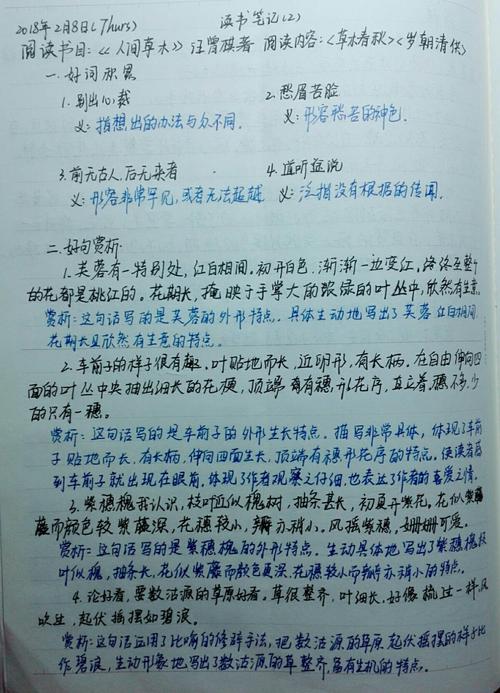 2018年2月8日(Thurs) 读书笔记(2)
阅读书目:《人间草木》汪曾祺著 阅读内容:<草木春秋><岁朝清供>
一.好词积累
1.别出心裁 2.愁眉苦脸
义:指想出的办法与众不同. 义:形容愁苦的神色.
3.前无古人,后无来者 4.道听途说
义:形容非常罕见,或者无法超越 义:泛指没有根据的传闻.
二.好句赏析.
1.芙蓉有一特别处,红白相间.初开白色.渐渐一边变红,终至整个
的花都是桃红的.花期长,掩映于手掌大的浓绿的叶丛中,欣然有生意.
赏析:这句话写的是芙蓉的外形特点.具体生动地写出了芙蓉红白相间,
花期长且欣然有生意的特点.
2.车前子的样子很有趣,叶贴地而长,近卵形,有长柄.在自由伸向四
面的叶丛中央抽出细长的花梗,顶端有穗形花序,直立着.穗不多,少
的只有一穗.
赏析:这句话写的是车前子的外形生长特点.描写非常具体,体现了车前
子贴地而长,有长柄,伸向四面生长,顶端有穗形花序的特点.使读者感
到车前子就出现在眼前.体现了作者观察之仔细,也表达了作者的喜爱之情.
3.紫穗槐我认识,枝叶近似槐树,抽条甚长,初夏开紫花.花似紫
藤而颜色较紫藤深,花穗较小,瓣亦稍小.风摇紫穗,姗姗可爱.
赏析:这句话写的是紫穗槐的外形特点.生动具体地写出了紫穗槐枝
叶似槐,抽条长,花似紫藤而颜色更深,花穗较小而瓣亦稍小的特点.
4.论好看,要数沽源的草原好看.草很整齐,叶细长,好像梳过一样,风
吹过,起伏摇摆如碧浪.
赏析:这句话运用了比喻的修辞手法,把数沽源的草原起伏摇摆的样子比
作碧浪,生动形象地写出了数沽源的草整齐,富有生机的特点.